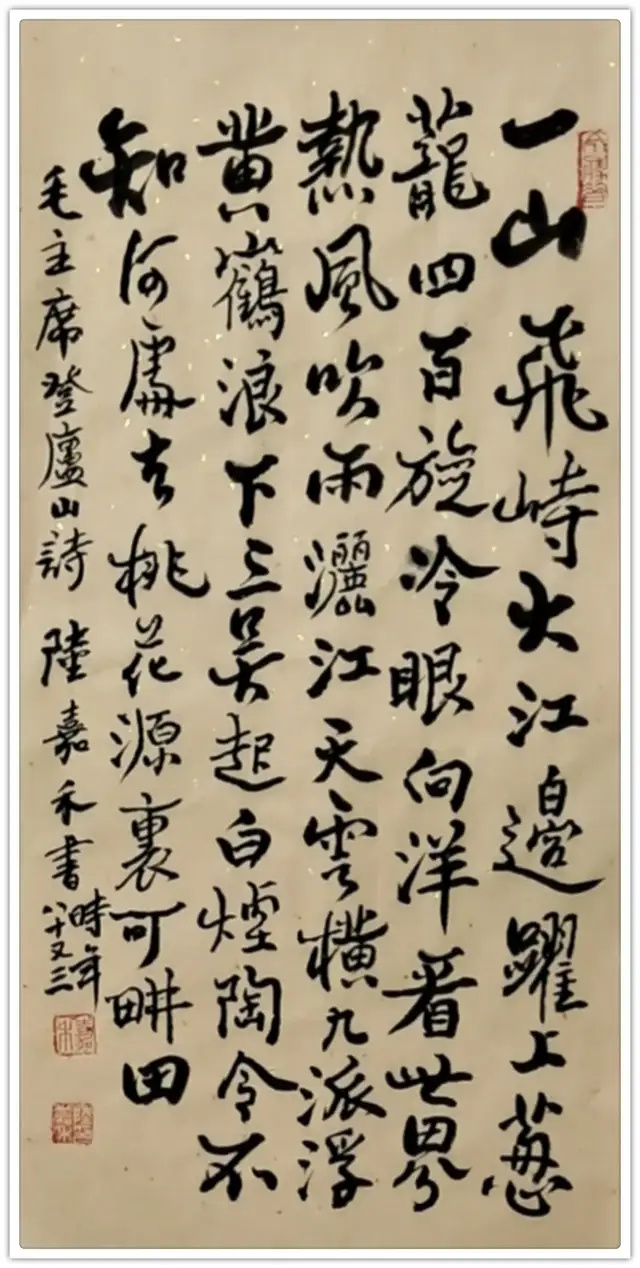 一山飛峙大江邊躍上蔥
蘢四百旋冷眼向洋看世界
熱風吹雨灑江天雲橫九派浮
黄鶴浪下三吳起白煙陶令不
知何處去桃花源裏可畊田
毛主席登廬山詩 陸嘉禾書 時年
八十又三